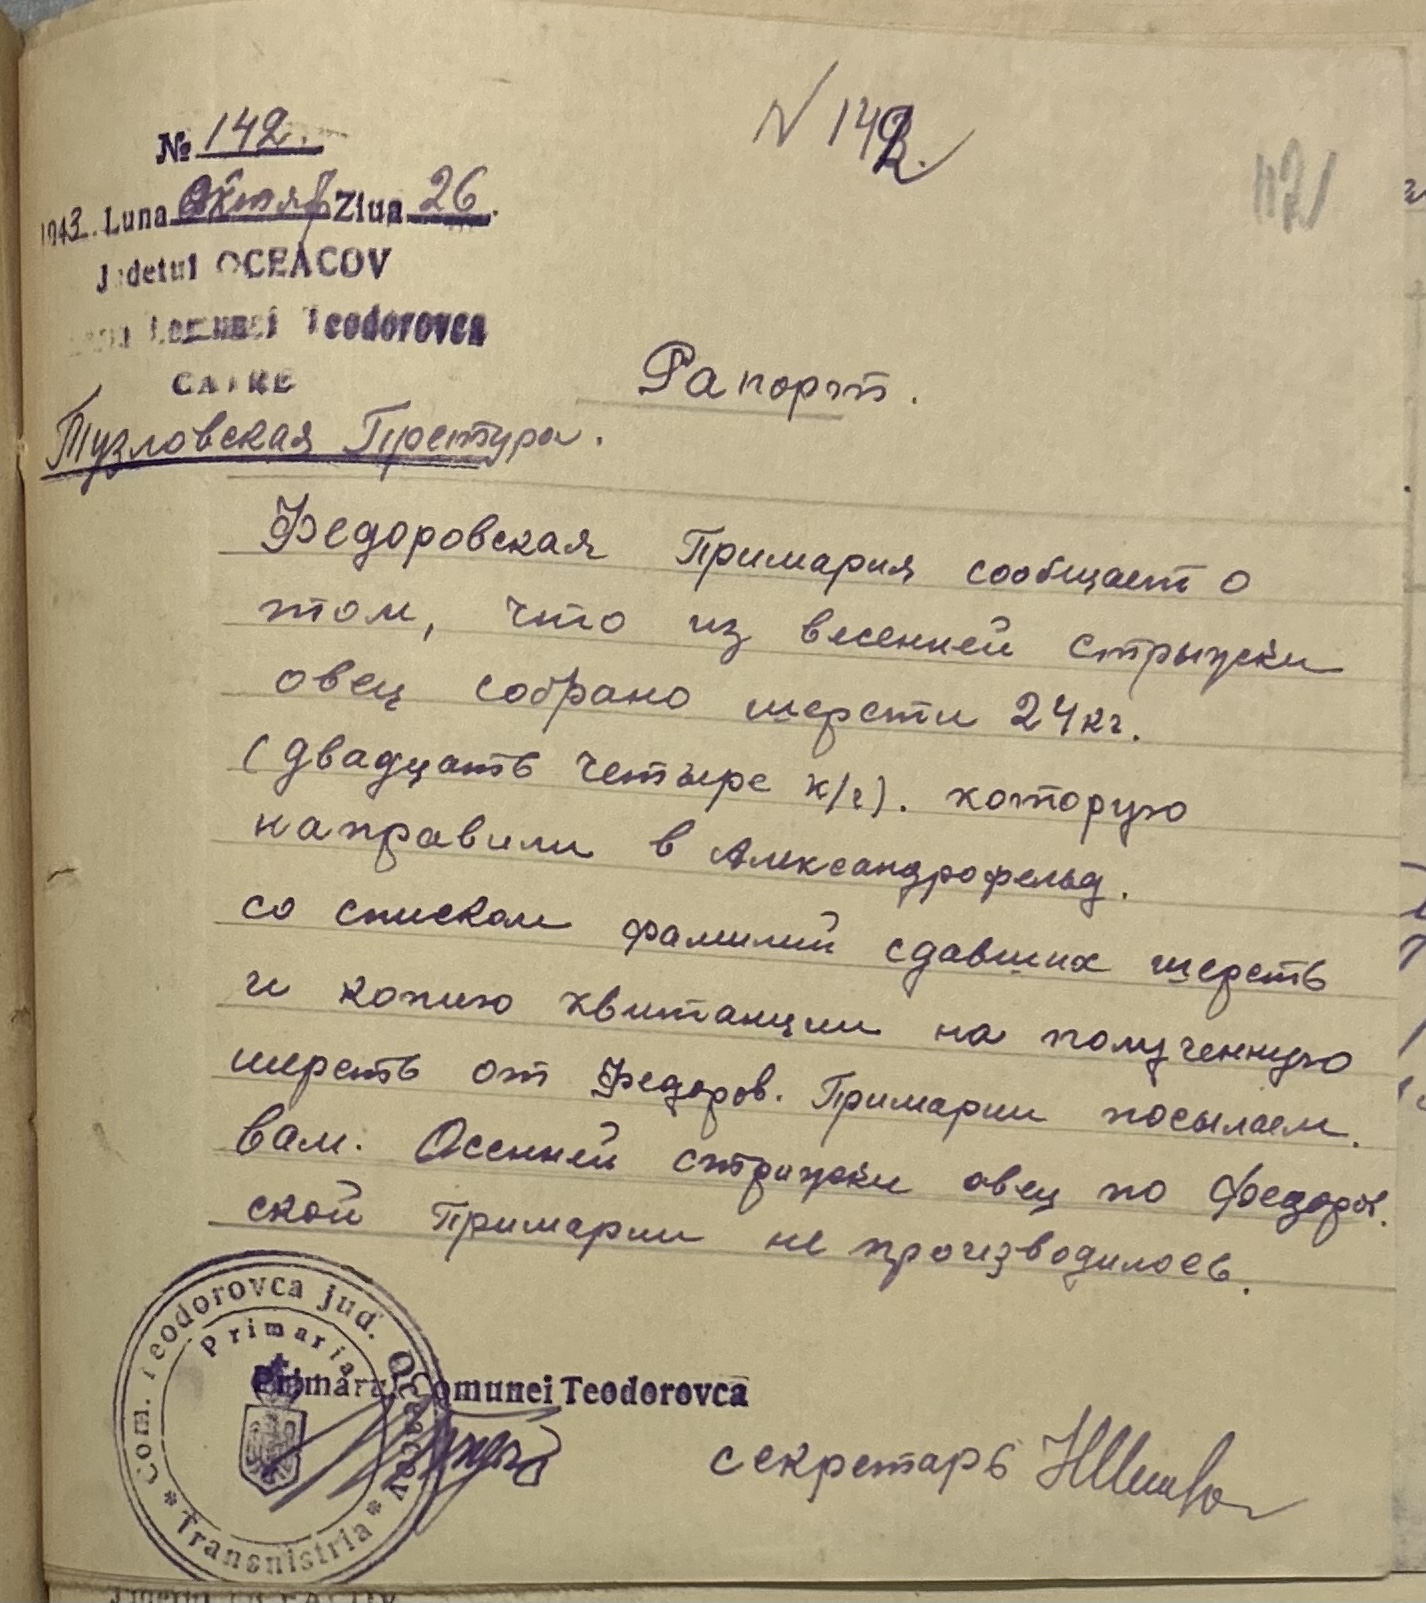 № 142.
N 142.
1943. Luna Октяб Ziua 26.
Judetul OCEACOV
Comunei Teodorovca
CATRE
Рапорт.
Тузловская Претура.
Федоровская Примария сообщает о
том, что из весенней стрыжки
овец собрано шерсти 24 кг.
(двадцать четыре к/г). которую
направили в Александрофельд.
со списком фамилий сдавших шерсть
и копию квитанции на полученную
шерсть от Федоров. Примарии посылаем.
вам. Осенней стрижки овец по Федоров.
ской Примарии не производилось.
Com. Teodorovca jud. Oceacov
Primaria
* Transnistria *
Primarul Comunei Teodorovca
секретарь